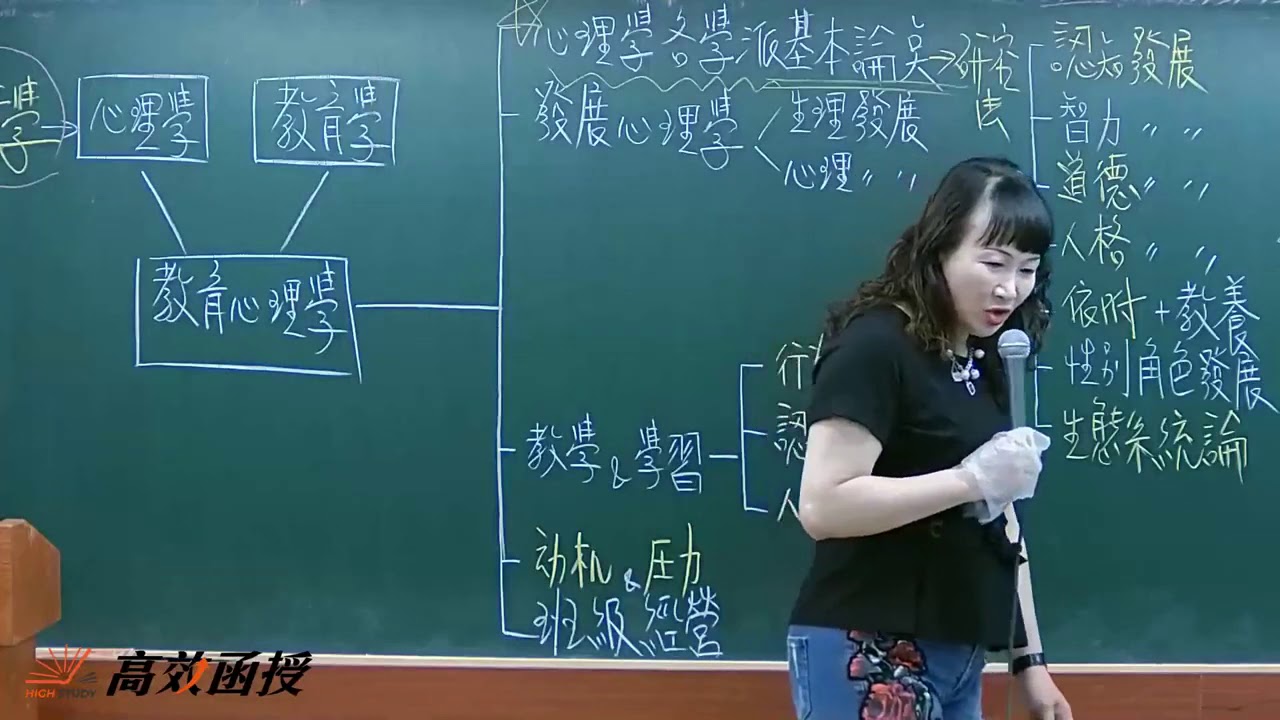 心理學
教育學
教育心理學
心理學各學派基本論點→研究法
發展心理學
生理發展
心理〃〃
教學&學習
行
認
人
动机&压力
班級經營
認知發展
智力〃〃
道德〃〃
人格〃〃
依附+教養
性別角色發展
生態系統論
HIGH STUDY
高效函授